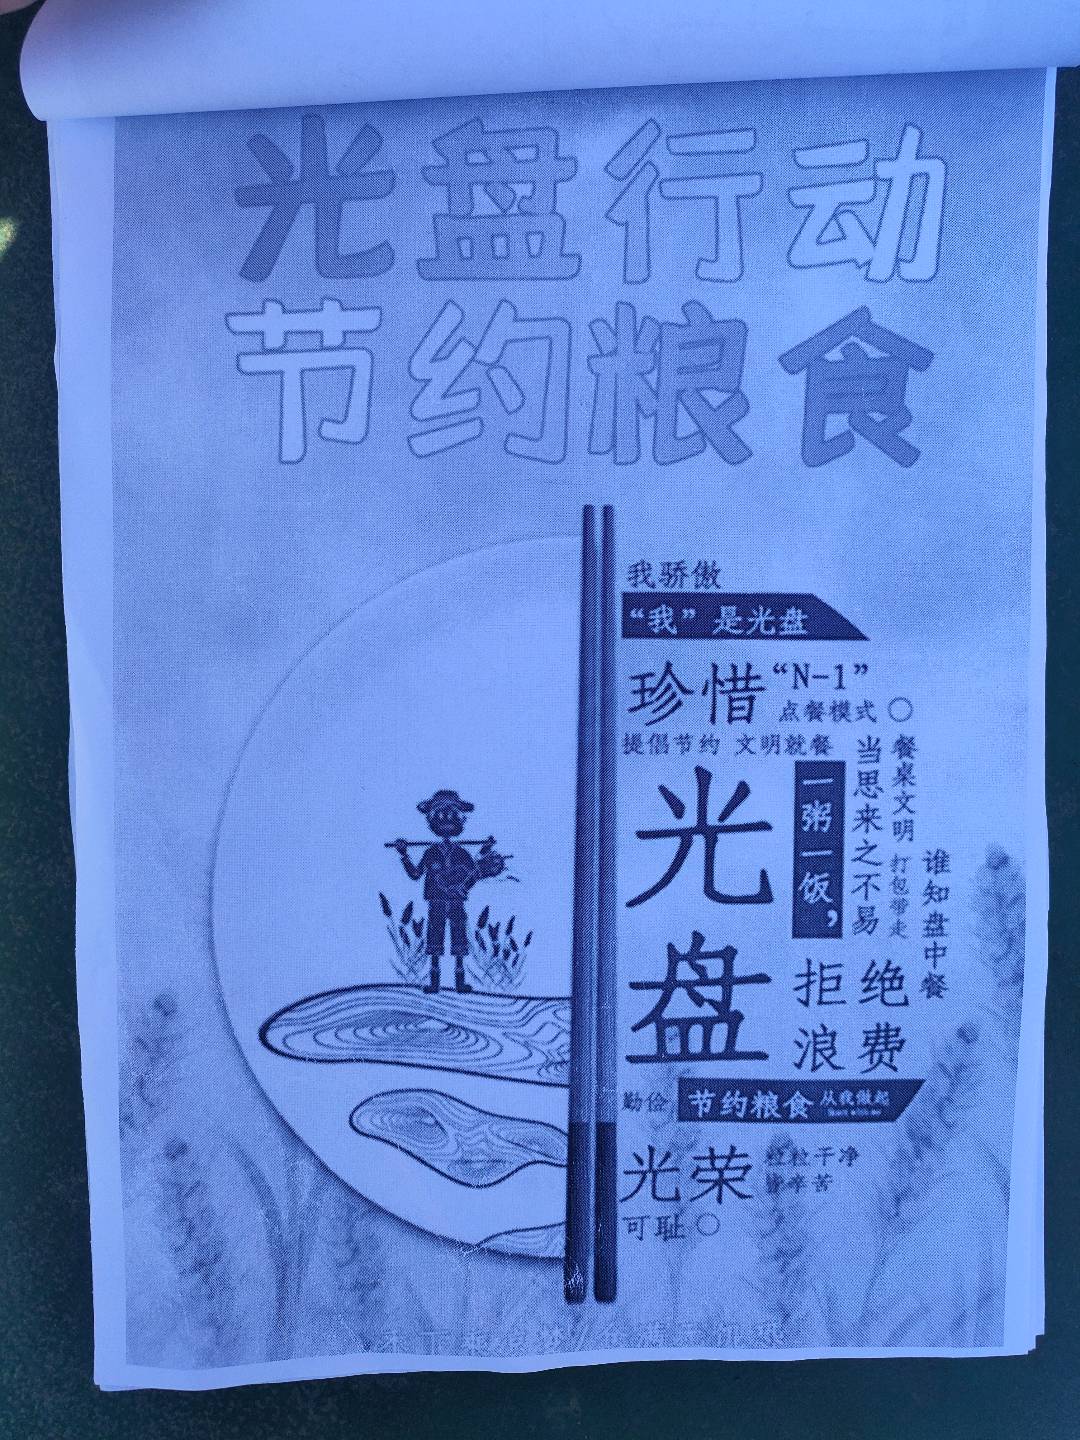 光盘行动
节约粮食
我骄傲
“我”是光盘
珍惜“N-1”
点餐模式
提倡节约 文明就餐
光盘
一粥一饭，
当思来之不易
餐桌文明
打包带走
谁知盘中餐
拒绝
浪费
勤俭
节约粮食 从我做起
光荣
粒粒干净
皆辛苦
可耻